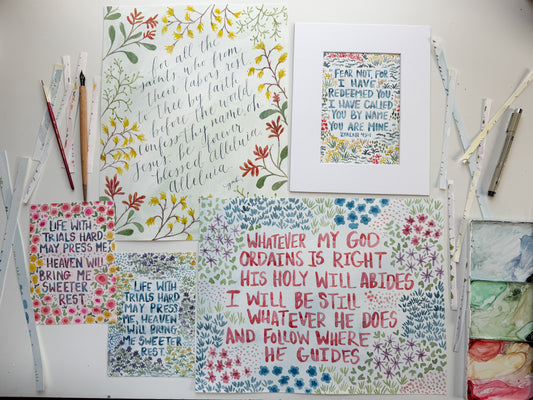 for all the
saints, who from
their labors rest
to Thee by faith
before the world
confess, thy name, oh
Jesus, be forever
blessed Alleluia,
Alleluia
FEAR NOT, FOR
I HAVE
REDEEMED YOU;
I HAVE CALLED
YOU BY NAME,
YOU ARE MINE.
ISAIAH 43:1
LIFE WITH
TRIALS HARD
MAY PRESS ME,
HEAVEN WILL
BRING ME
SWEETER
REST.
LIFE WITH
TRIALS HARD
MAY PRESS
ME, HEAVEN
WILL BRING
ME SWEETER
REST.
WHATEVER MY GOD
ORDAINS IS RIGHT
HIS HOLY WILL ABIDES
I WILL BE STILL
WHATEVER HE DOES
AND FOLLOW WHERE
HE GUIDES